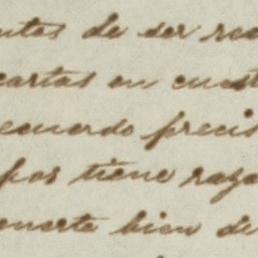 ntes de ser rec
cartas en cuest
ecuerdo precis
pos tiene raza
onerte bien de